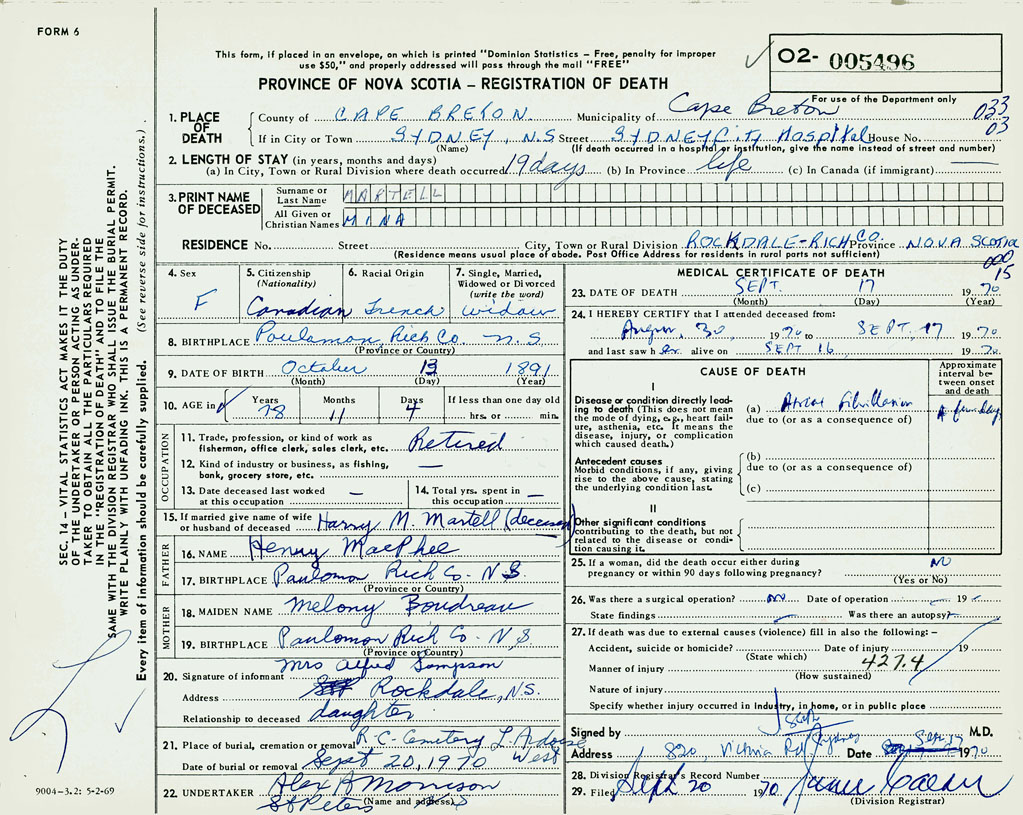 FORM 6
This form, if placed in an envelope, on which is printed "Dominion Statistics – Free, penalty for improper
use $50," and properly addressed will pass through the mail "FREE"
O2- 005496
PROVINCE OF NOVA SCOTIA – REGISTRATION OF DEATH
For use of the Department only
033
03
1. PLACE OF DEATH
County of CAPE BRETON Municipality of Cape Breton
If in City or Town SYDNEY, N.S Street SYDNEY City Hospital House No.
(Name) (If death occurred in a hospital or institution, give the name instead of street and number)
2. LENGTH OF STAY (in years, months and days)
(a) In City, Town or Rural Division where death occurred 19 days (b) In Province life (c) In Canada (if immigrant) —
3. PRINT NAME OF DECEASED
Surname or Last Name MARTELL
All Given or Christian Names MINA
RESIDENCE No. Street City, Town or Rural Division ROCKDALE-RICH CO. Province NOVA SCOTIA
(Residence means usual place of abode. Post Office Address for residents in rural parts not sufficient)
000
15
SEC. 14 – VITAL STATISTICS ACT MAKES IT THE DUTY
OF THE UNDERTAKER OR PERSON ACTING AS UNDER-
TAKER TO OBTAIN ALL THE PARTICULARS REQUIRED
IN THE "REGISTRATION OF DEATH" AND TO FILE THE
SAME WITH THE DIVISION REGISTRAR WHO SHALL ISSUE THE BURIAL PERMIT.
WRITE PLAINLY WITH UNFADING INK. THIS IS A PERMANENT RECORD.
Every item of information should be carefully supplied. (See reverse side for instructions.)
4. Sex
F
5. Citizenship
(Nationality)
Canadian
6. Racial Origin
French
7. Single, Married,
Widowed or Divorced
(write the word)
widow
8. BIRTHPLACE Poulamon, Rich Co. N.S.
(Province or Country)
9. DATE OF BIRTH October 13 1891
(Month) (Day) (Year)
10. AGE in
Years Months Days If less than one day old
78 11 4 hrs. or min.
OCCUPATION
11. Trade, profession, or kind of work as
fisherman, office clerk, sales clerk, etc. Retired
12. Kind of industry or business, as fishing,
bank, grocery store, etc. —
13. Date deceased last worked
at this occupation —
14. Total yrs. spent in
this occupation —
15. If married give name of wife
or husband of deceased Harry M. Martell (deceased)
FATHER
16. NAME Henry MacPhee
17. BIRTHPLACE Paulomon Rich Co. N S
(Province or Country)
MOTHER
18. MAIDEN NAME Melony Boudreau
19. BIRTHPLACE Paulomon Rich Co. N S
(Province or Country)
20. Signature of informant Mrs Alfred Sampson
Address Rockdale, N.S.
Relationship to deceased daughter
21. Place of burial, cremation or removal R-C-Cemetery L'Ardoise West
Date of burial or removal Sept 20, 1970
22. UNDERTAKER Alex A Morrison
St Peters
(Name and address)
9004-3.2: 5-2-69
MEDICAL CERTIFICATE OF DEATH
23. DATE OF DEATH SEPT. 17 1970
(Month) (Day) (Year)
24. I HEREBY CERTIFY that I attended deceased from:
August 30 1970 to SEPT, 17 1970
and last saw her alive on SEPT 16 1970
CAUSE OF DEATH
Approximate
interval be-
tween onset
and death
I
Disease or condition directly lead-
ing to death (This does not mean
the mode of dying, e.g., heart fail-
ure, asthenia, etc. It means the
disease, injury, or complication
which caused death.)
(a) Atrial fibrillation
due to (or as a consequence of)
A few days
Antecedent causes
Morbid conditions, if any, giving
rise to the above cause, stating
the underlying condition last.
(b)
due to (or as a consequence of)
(c)
II
Other significant conditions
contributing to the death, but not
related to the disease or condi-
tion causing it.
25. If a woman, did the death occur either during
pregnancy or within 90 days following pregnancy? NO
(Yes or No)
26. Was there a surgical operation? no Date of operation — 19 —
State findings — Was there an autopsy? —
27. If death was due to external causes (violence) fill in also the following: –
Accident, suicide or homicide? Date of injury 19
(State which)
Manner of injury 427.4
(How sustained)
Nature of injury
Specify whether injury occurred in Industry, in home, or in public place
Signed by M.D.
Address 820, Victoria Rd Sydney Date Sep 17 1970
28. Division Registrar's Record Number
29. Filed Sept 20 1970
(Division Registrar)